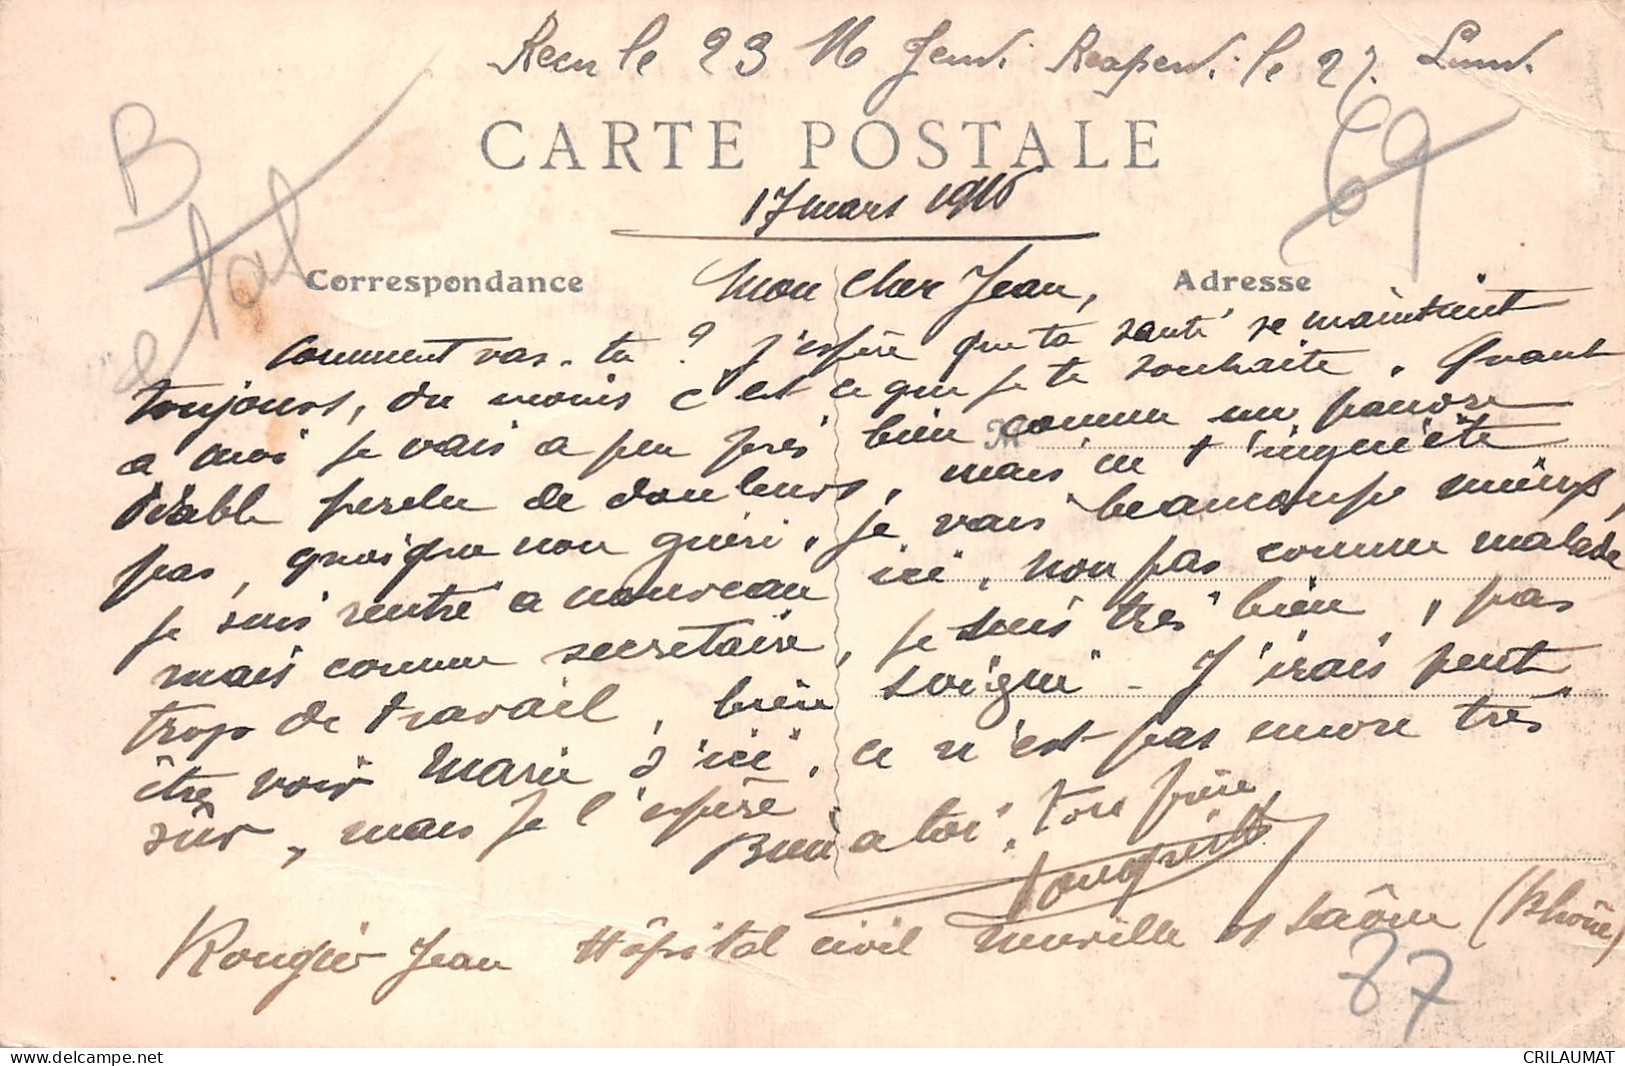 Recu le 23 M Jeudi. Reapendu le 27. Lundi.
B
état
69
CARTE POSTALE
17 mars 1916
Correspondance
Adresse
Mon cher Jean,
Comment vas-tu ? J'espère que ta santé se maintient
toujours, du moins c'est ce que je te souhaite. Quant
a moi je vais a peu près bien comme un pauvre
diable perclu de douleurs, mais ne t'inquiète
pas, quoique non guéri, je vais beaucoup mieux,
je suis rentré a nouveau ici, non pas comme malade
mais comme secrétaire, je suis très bien, pas
trop de travail, bien soigné - J'irais peut
être voir Marie d'ici, ce n'est pas encore très
sûr, mais je l'espère
Bien a toi. Ton frère
Rougier Jean Hôpital civil Neuville s/ Saône (Rhône)
87
CRILAUMAT